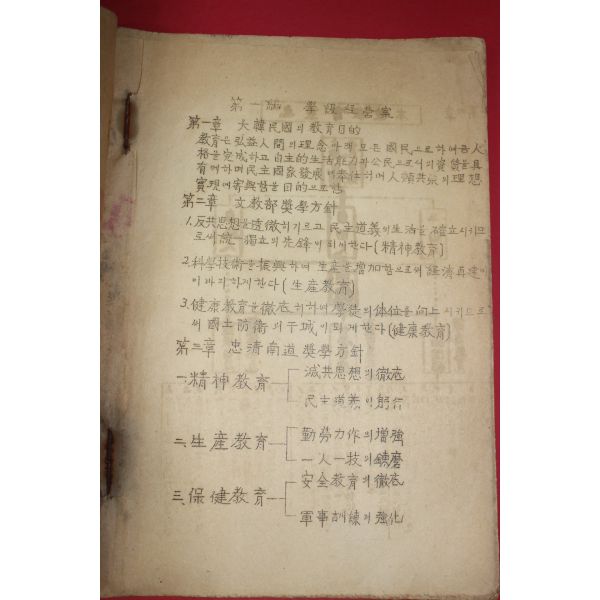 第一編 學級經營案
第一章 大韓民國의 敎育目的
敎育은 弘益人間의 理念아래 모든 國民으로하여금 人
格을 完成하고 自主的生活能力과 公民으로서의 資質을 具
有케하며 民主國家發展에 奉仕하며 人類共榮의 理想
實現에 寄與함을 目的으로한다
第二章 文敎部獎學方針
1. 反共思想을 透徹히 기르고 民主道義의 生活을 確立시키므
로써 統一獨立의 先鋒이 되게한다 (精神敎育)
2. 科學技術을 振興하여 生産을 增加함으로써 經濟再建에
이바지하게한다 (生産敎育)
3. 健康敎育을 徹底히하여 學徒의 体位를 向上시키므로
써 國土防衛의 干城이 되게한다 (健康敎育)
第三章 忠淸南道獎學方針
一. 精神敎育 滅共思想의 徹底
民主道義의 躬行
二. 生産敎育 勤勞力作의 增強
一人一技의 鍊磨
三. 保健敎育 安全敎育의 徹底
軍事訓練의 強化